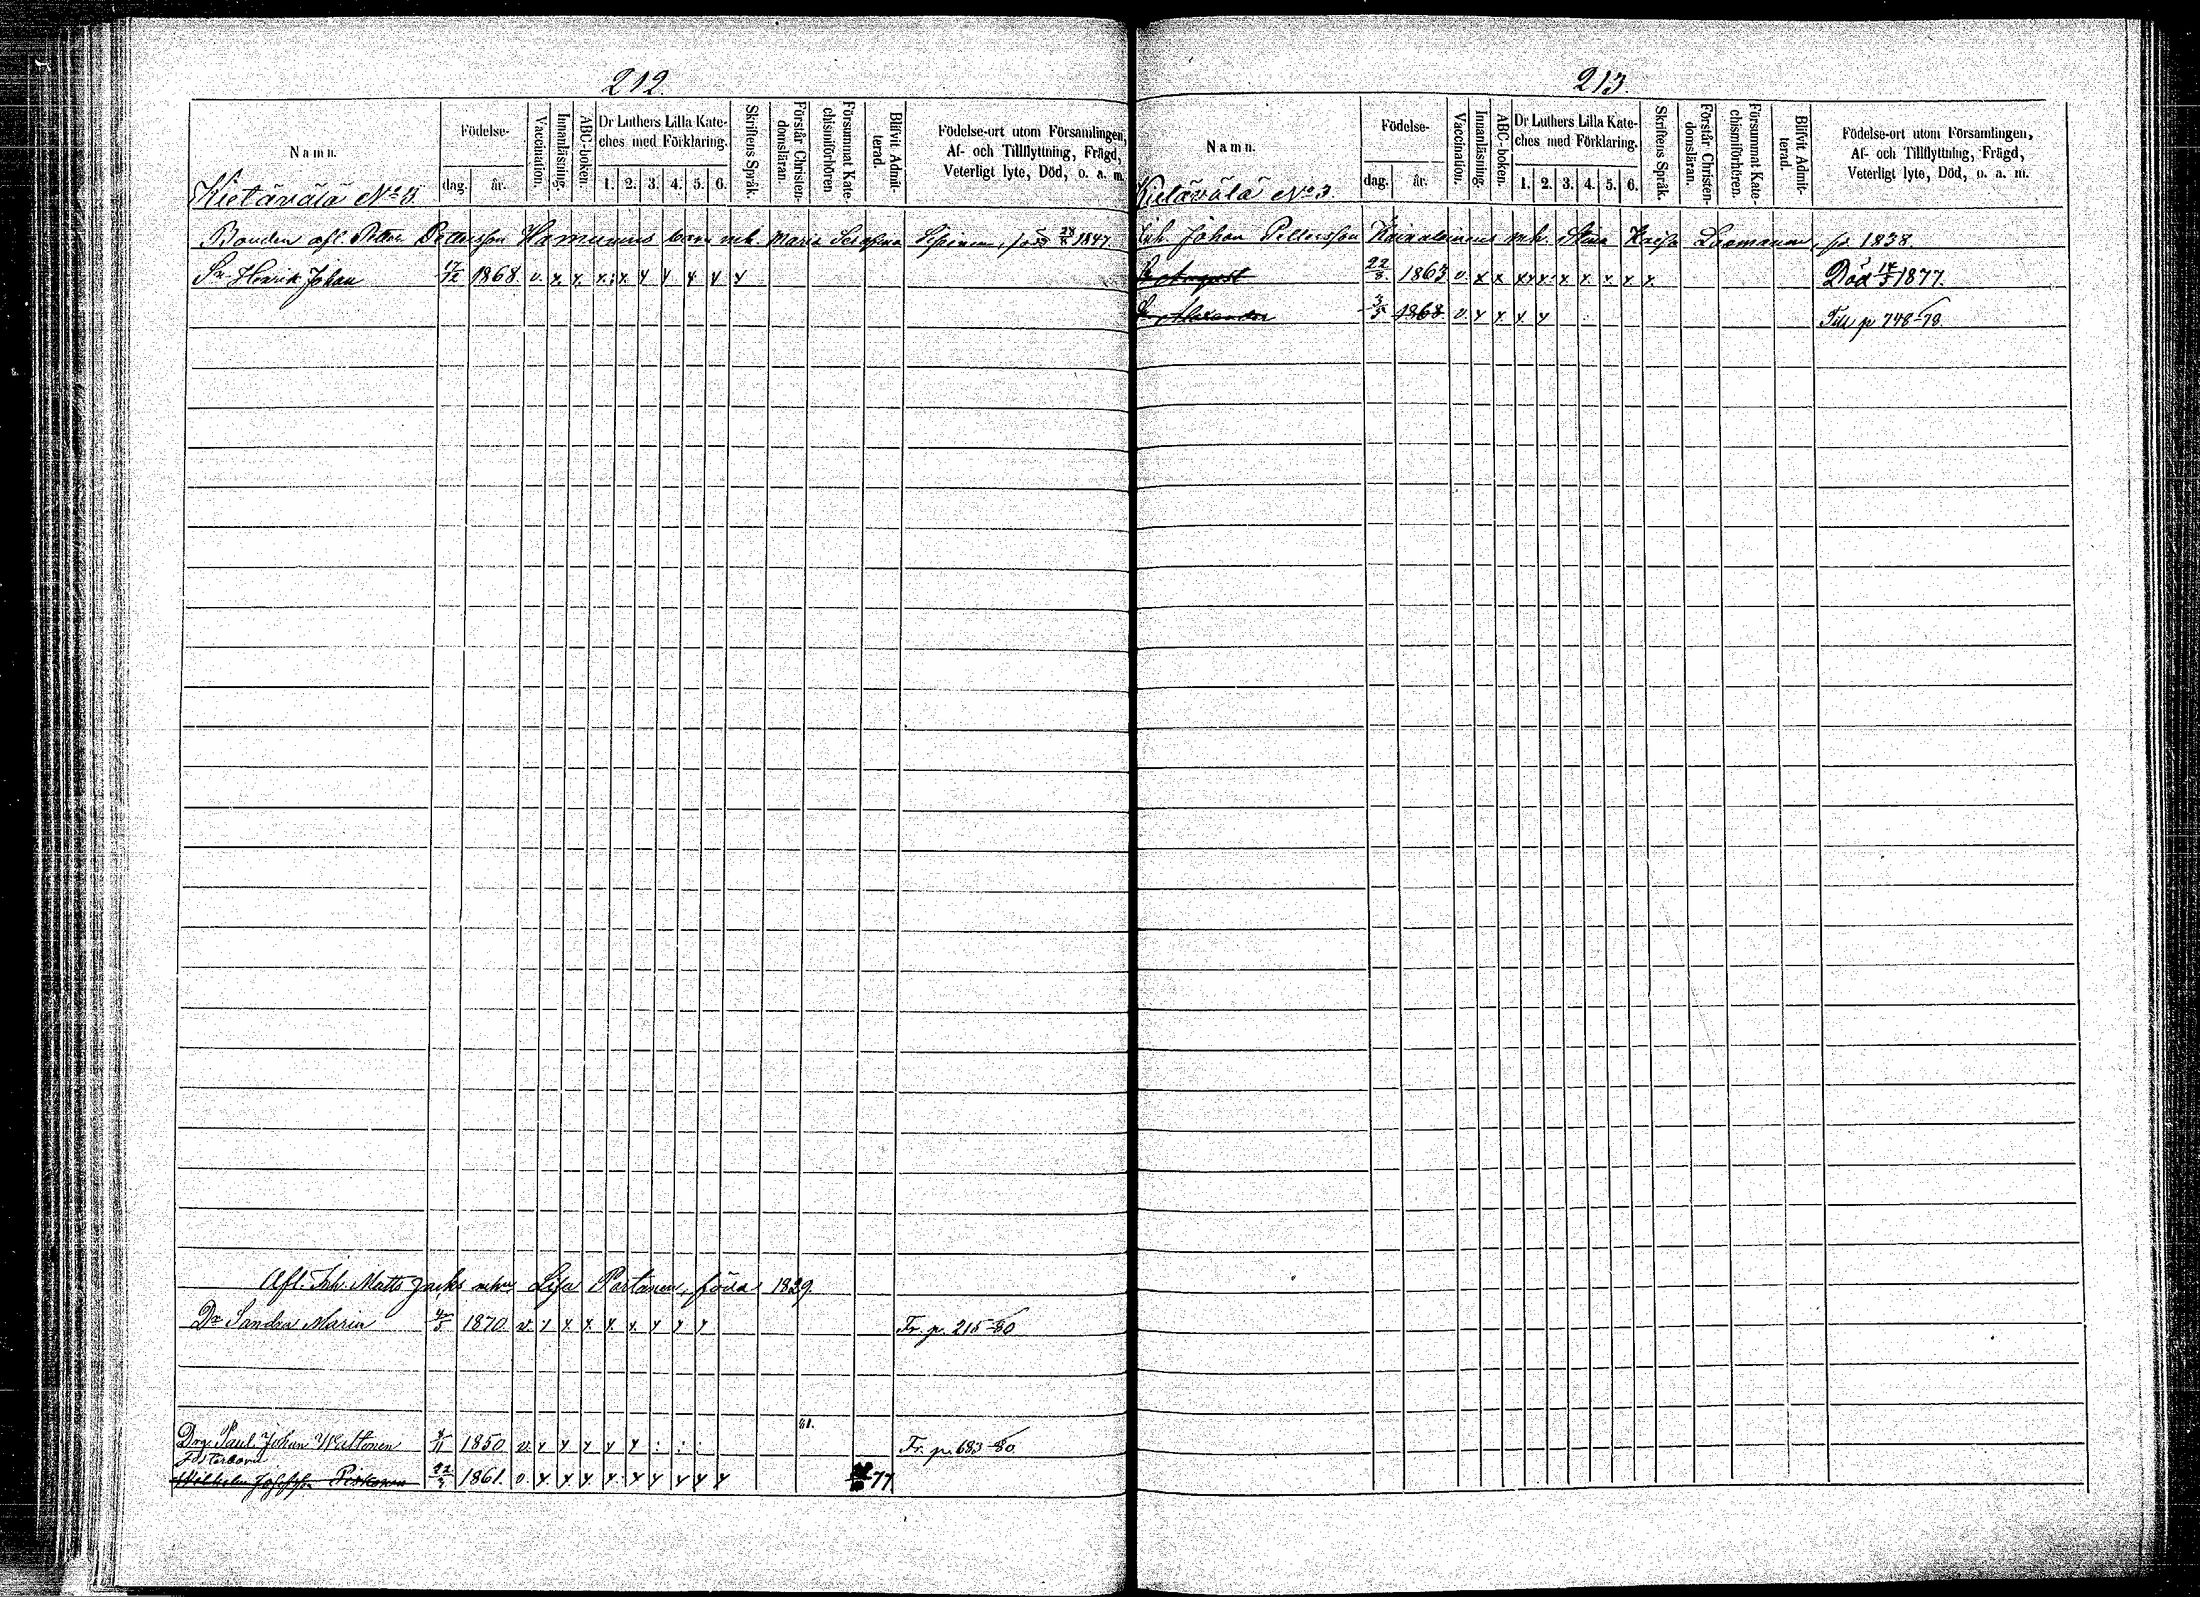 212.
Namn.
Födelse-
dag. år.
Vaccination.
Innanläsning.
ABC-boken.
Dr Luthers Lilla Kate-
ches med Förklaring.
1. 2. 3. 4. 5. 6.
Skriftens Språk.
Förstår Christen-
domsläran.
Försummat Kate-
chismiförhören.
Blifvit Admit-
terad.
Födelse-ort utom Församlingen,
Af- och Tillflyttning, Frägd,
Veterligt lyte, Död, o. a. m.
Kietävälä No 3.
Bonden afl. Petter Pettersson barn mh. Maria Serafina 1847.
Sn Henrik Johan 17/12 1868. v. x. x. x. x. x x x x x
Afl. Inh. Matts Lisa Partanen, född 1829.
Dr Sandra Maria 4/5 1870. v. x x x x x x x x
Fr. p. 215-80
81.
Drg. Paul Johan 4/11 1850. v. x x x x x : : :
Fr. p. 683-80
Fosterbarn
Wilhelm Josefsson 1861. v. x x x x x x x x x 77
213.
Namn.
Födelse-
dag. år.
Vaccination.
Innanläsning.
ABC-boken.
Dr Luthers Lilla Kate-
ches med Förklaring.
1. 2. 3. 4. 5. 6.
Skriftens Språk.
Förstår Christen-
domsläran.
Försummat Kate-
chismiförhören.
Blifvit Admit-
terad.
Födelse-ort utom Församlingen,
Af- och Tillflyttning, Frägd,
Veterligt lyte, Död, o. a. m.
Kietävälä No 3.
Inh. Johan Pettersson mh. Stina Kaisa Laamanen, fd. 1838.
S. August 22/8. 1863 v. x x x x x x x x x. Död 1877.
S. Alexander 3/5 1868 v. x x. x x
Till p 748-78